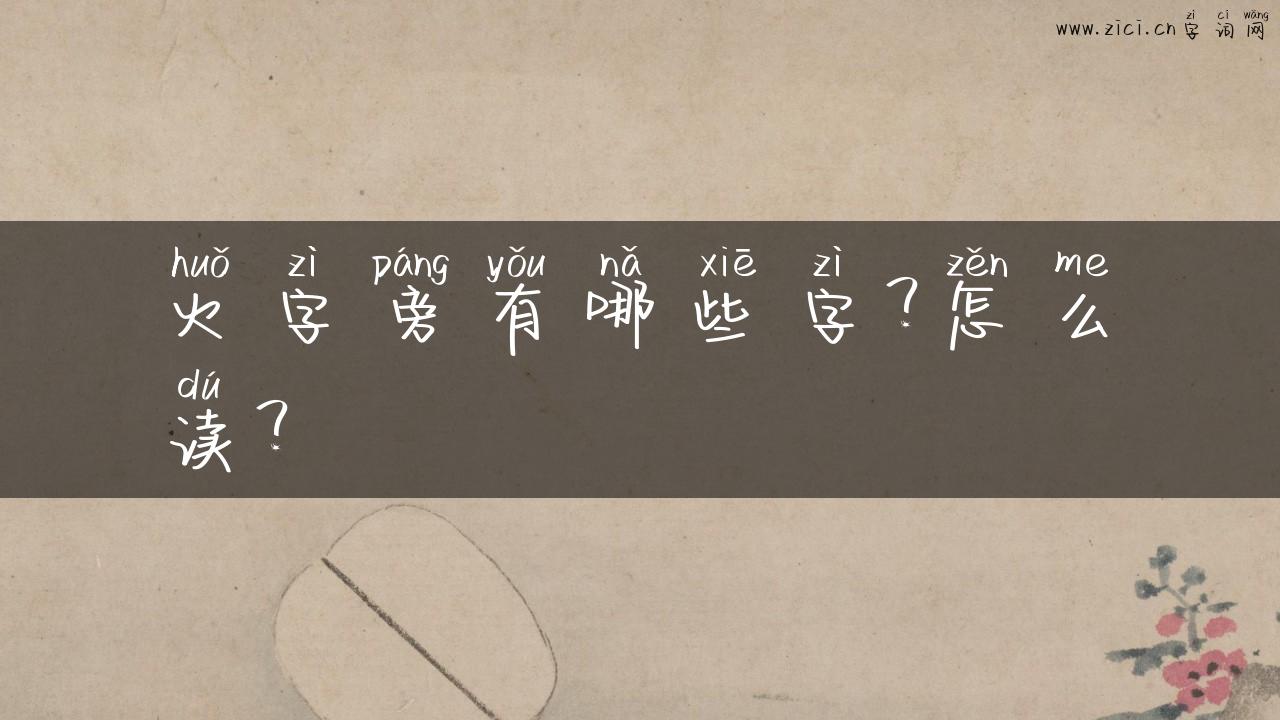 zì cí wǎng
www.zici.cn 字 词 网
huǒ zì páng yǒu nǎ xiē zì zěn me
火 字 旁 有 哪 些 字 ? 怎 么
dú
读 ?